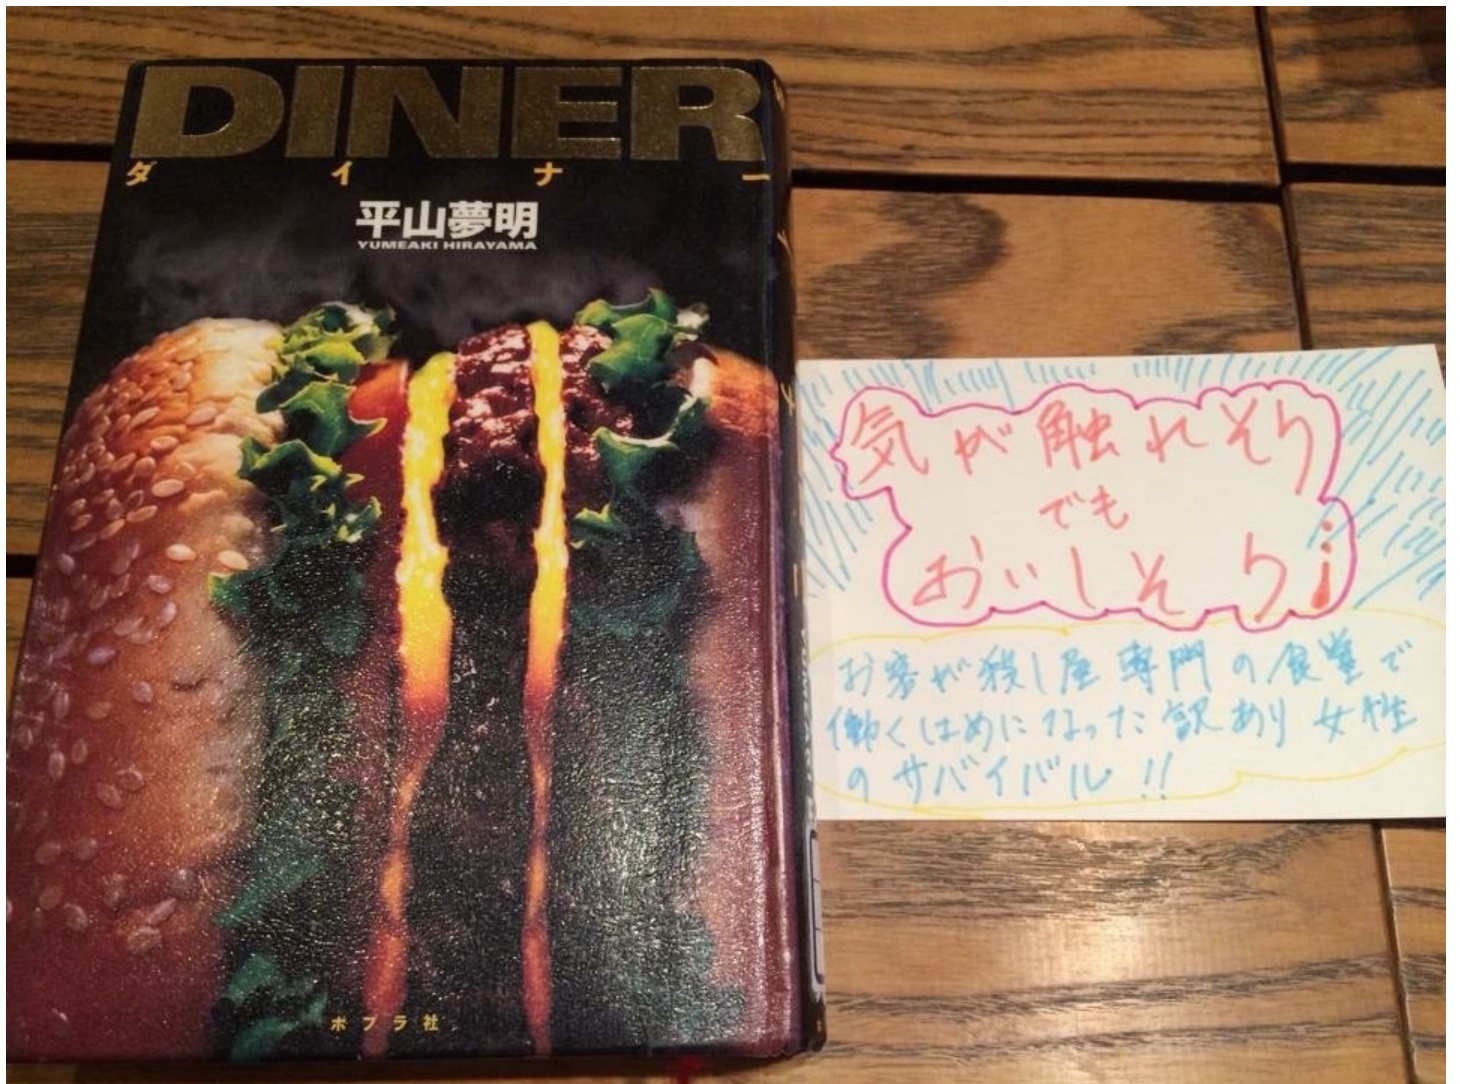 DINER
ダイナー
平山夢明
YUMEAKI HIRAYAMA
ポプラ社
気が触れそう
でも
おいしそう
お客が殺し屋専門の食堂で
働くはめになった訳あり女性
のサバイバル!!